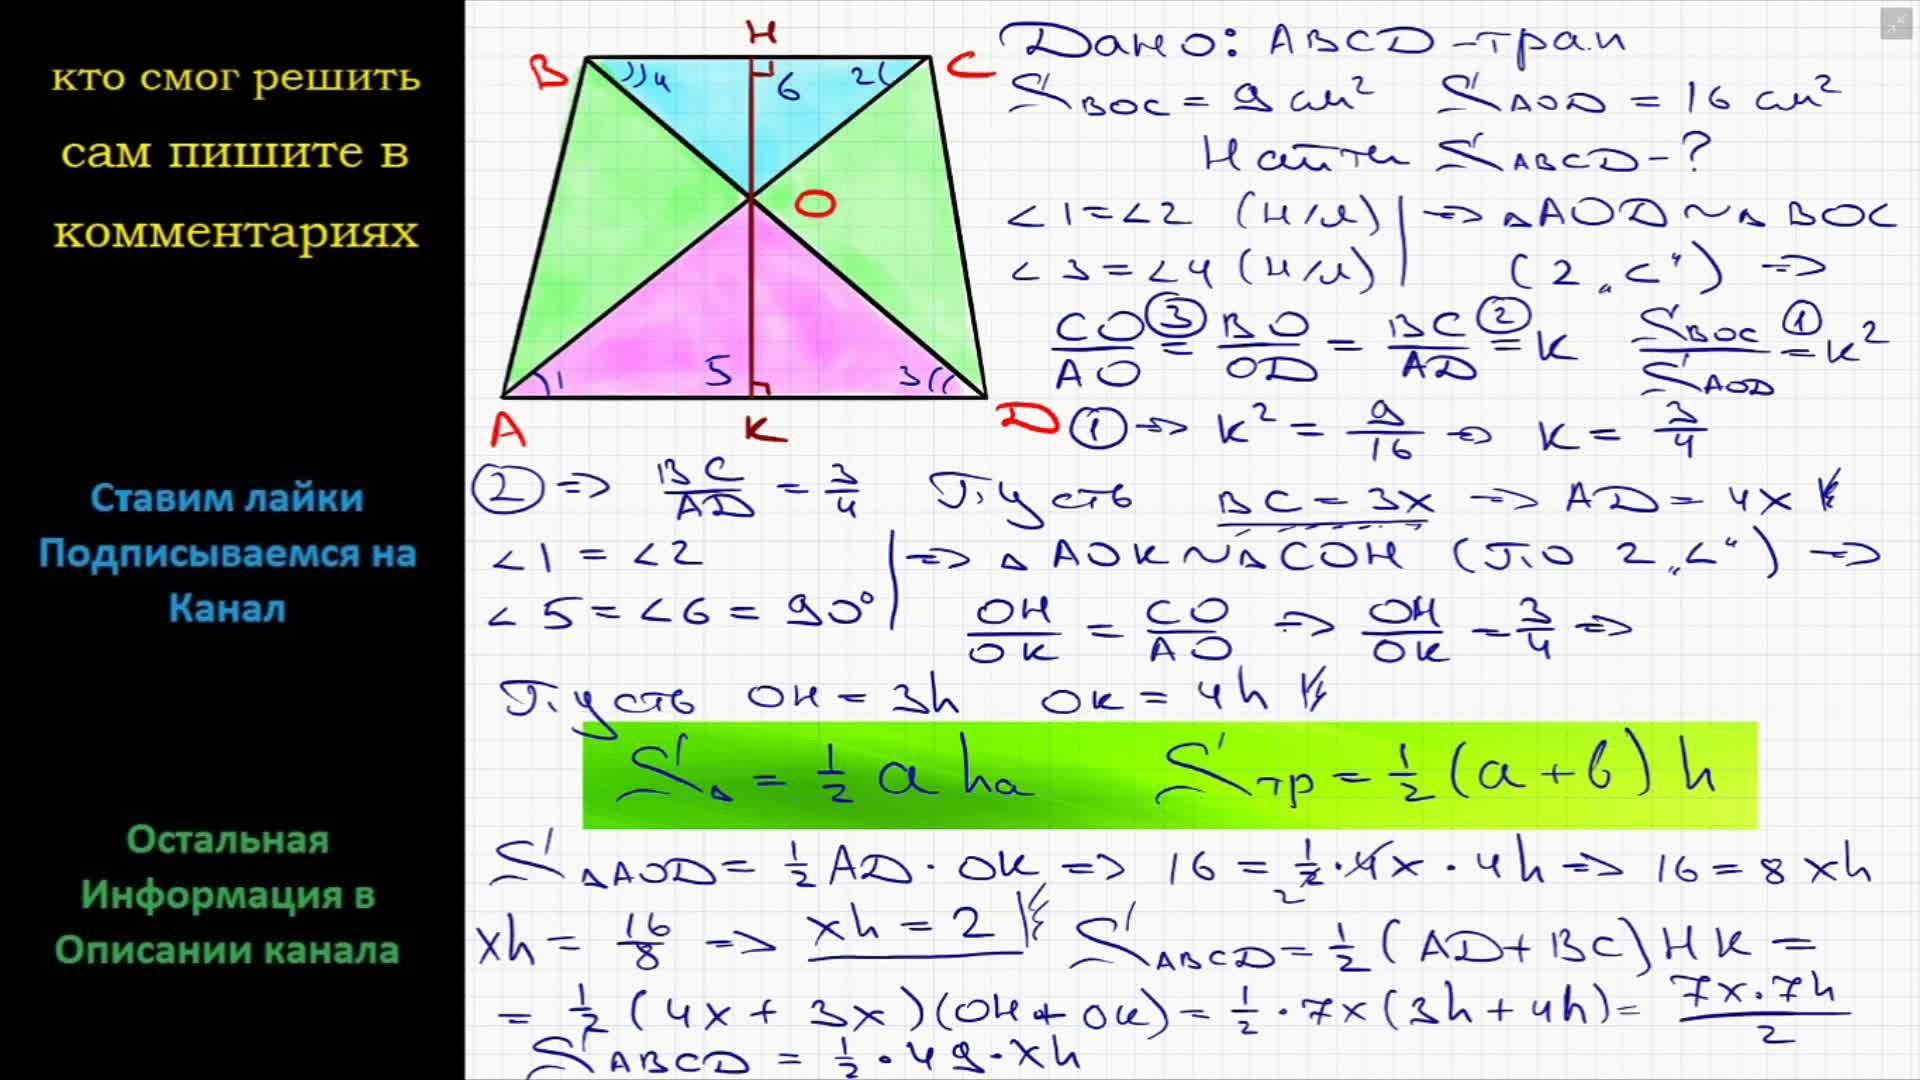 кто смог решить
сам пишите в
комментариях
Ставим лайки
Подписываемся на
Канал
Остальная
Информация в
Описании канала
H
B ))4 6 2( C
O
A 1 5 3(( D
K
Дано: ABCD - трап
S BOC = 9 см² S AOD = 16 см²
Найти S ABCD - ?
∠1 = ∠2 (н/л) | => △AOD ~ △BOC
∠3 = ∠4 (н/л) | (2 „∠“) =>
CO/AO =③ BO/OD = BC/AD =② K S BOC/S AOD =① K²
① => K² = 9/16 => K = 3/4
② => BC/AD = 3/4 Пусть BC = 3x => AD = 4x
∠1 = ∠2 | => △AOK ~ △COH (по 2 „∠“) =>
∠5 = ∠6 = 90° | OH/OK = CO/AO => OH/OK = 3/4 =>
Пусть OH = 3h OK = 4h
S△ = 1/2 a ha Sтр = 1/2 (a + b) h
S△AOD = 1/2 AD · OK => 16 = 1/2 · 4x · 4h => 16 = 8 xh
2
xh = 16/8 => xh = 2 S ABCD = 1/2 (AD + BC) HK =
= 1/2 (4x + 3x)(OH + OK) = 1/2 · 7x (3h + 4h) = 7x · 7h/2
S ABCD = 1/2 · 49 · xh